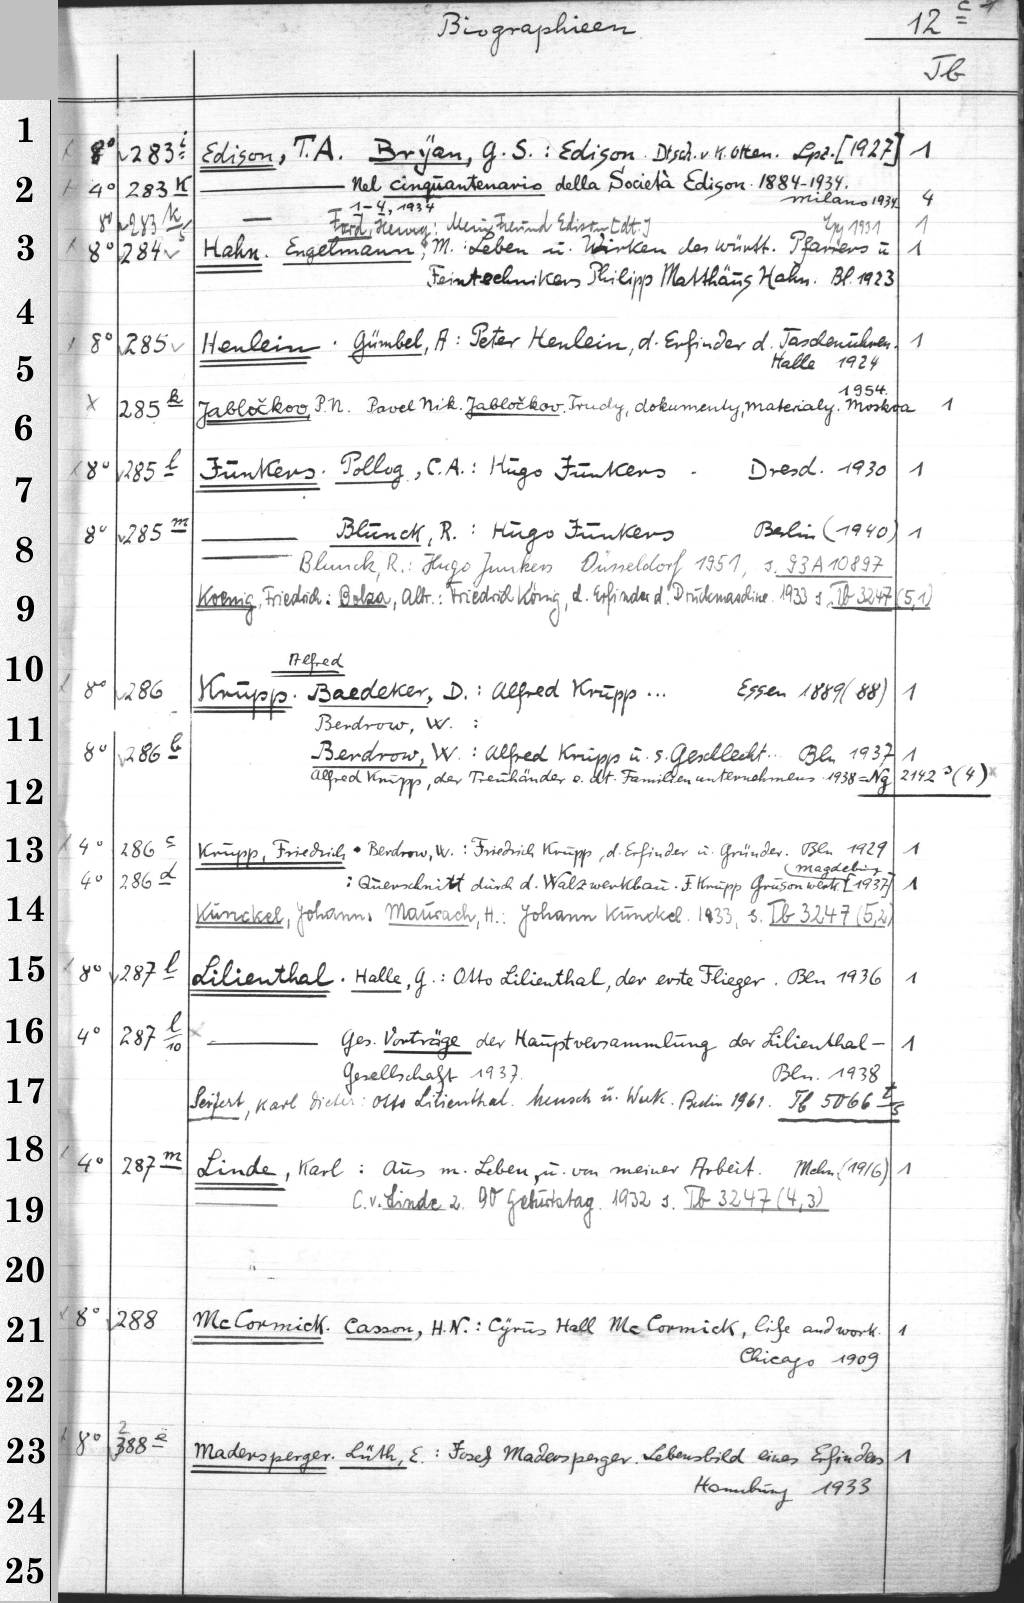 Biographieen
12 c 1
Tb
1
8° 283 i Edison, T.A. Bryan, G. S. : Edison. Dtsch. v. K. Otten. Lpz. [1927] 1
2
4° 283 k Nel cinquantenario della Società Edison. 1884-1934.
1-4, 1934 Milano 1934 4
8° 283 k/5 Ford, Henry: Mein Freund Edison [dt.] Lpz 1931 1
3
8° 284 Hahn. Engelmann, M. : Leben u. Wirken des württ. Pfarrers u 1
Feintechnikers Philipp Matthäus Hahn. Bl. 1923
4
8° 285 Henlein. Gümbel, A : Peter Henlein, d. Erfinder d. Taschenuhren. 1
Halle 1924
5
1954.
285 k Jabločkov, P.N. Pavel Nik. Jabločkov. Trudy, dokumenty, materialy. Moskva 1
6
8° 285 l Junkers. Pollog, C.A. : Hugo Junkers - Dresd. 1930 1
7
8° 285 m Blunck, R. : Hugo Junkers Berlin (1940) 1
8
Blunck, R. : Hugo Junkers Düsseldorf 1951, s. 93 A 10897
Koenig, Friedrich : Bolza, Albr. : Friedrich König, d. Erfinder d. Druckmaschine. 1933 s. Tb 3247 (5,1)
9
10
Alfred
8° 286 Krupp. Baedeker, D. : Alfred Krupp ... Essen 1889 (88) 1
Berdrow, W. :
11
8° 286 b Berdrow, W. : Alfred Krupp u. s. Geschlecht... Bln 1937 1
Alfred Krupp, der Treuhänder e. dt. Familienunternehmens 1938 = Ng 2142 5 (4)
12
13
4° 286 c Krupp, Friedrich. Berdrow, W. : Friedrich Krupp, d. Erfinder u. Gründer. Bln 1929 1
(Magdeburg
4° 286 d : Querschnitt durch d. Walzwerkbau. F. Krupp Grusonwerk [1937] 1
14
Kunckel, Johann. Maurach, H. : Johann Kunckel. 1933, s. Tb 3247 (5,2)
15
8° 287 l Lilienthal. Halle, G. : Otto Lilienthal, der erste Flieger. Bln 1936 1
16
4° 287 l/10 Ges. Vorträge der Hauptversammlung der Lilienthal- 1
Gesellschaft 1937. Bln. 1938
17
Seifert, Karl Dieter: Otto Lilienthal. Mensch u. Werk. Berlin 1961. Tb 5066 t/5
18
4° 287 m Linde, Karl : Aus m. Leben u. von meiner Arbeit. Mchn. (1916) 1
19
C. v. Linde z. 90 Geburtstag. 1932 s. Tb 3247 (4,3)
20
8° 288 McCormick. Casson, H.N. : Cyrus Hall McCormick, life and work. 1
21
Chicago 1909
22
8° 288 e Madersperger. Lüth, E. : Josef Madersperger. Lebensbild eines Erfinders 1
23
Hamburg 1933
24
25